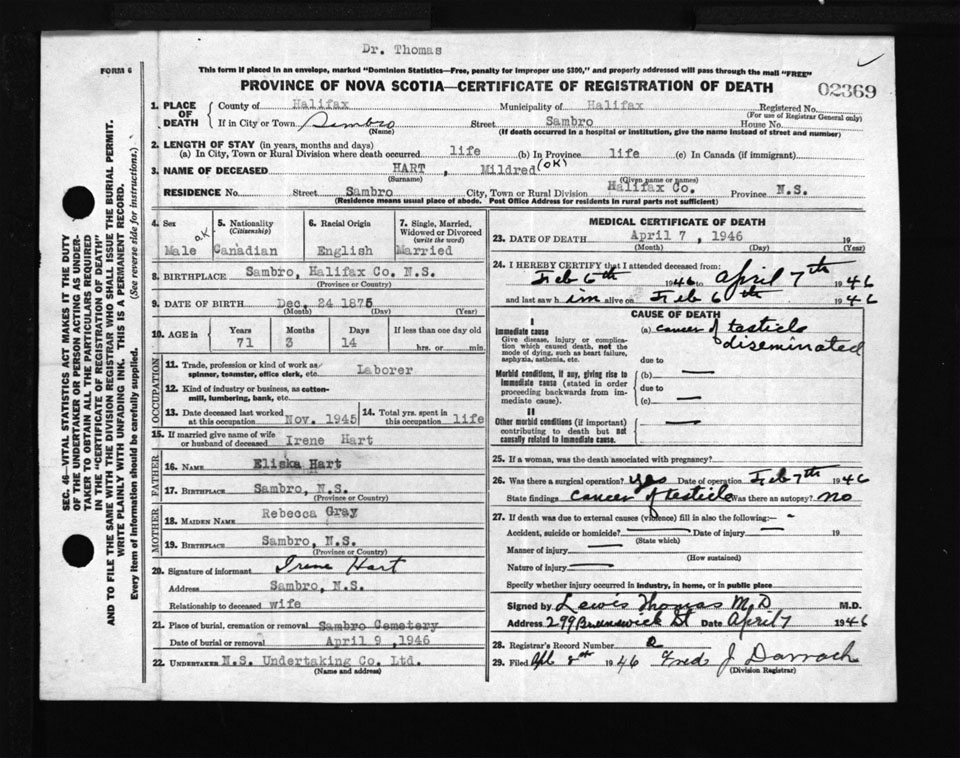 Dr. Thomas
FORM 6
This form if placed in an envelope, marked "Dominion Statistics—Free, penalty for improper use $300," and properly addressed will pass through the mail "FREE"
PROVINCE OF NOVA SCOTIA—CERTIFICATE OF REGISTRATION OF DEATH
02369
1. PLACE OF DEATH
County of Halifax Municipality of Halifax Registered No.
(For use of Registrar General only)
If in City or Town Sambro Street Sambro House No.
(Name) (If death occurred in a hospital or institution, give the name instead of street and number)
2. LENGTH OF STAY (in years, months and days)
(a) In City, Town or Rural Division where death occurred life (b) In Province life (c) In Canada (if immigrant)
3. NAME OF DECEASED HART , Mildred (OK)
(Surname) (Given name or names)
RESIDENCE No. Street Sambro City, Town or Rural Division Halifax Co. Province N.S.
(Residence means usual place of abode. Post Office Address for residents in rural parts not sufficient)
4. Sex
Male O.K
5. Nationality (Citizenship)
Canadian
6. Racial Origin
English
7. Single, Married, Widowed or Divorced (write the word)
Married
8. BIRTHPLACE Sambro, Halifax Co. N.S.
(Province or Country)
9. DATE OF BIRTH Dec. 24 1875
(Month) (Day) (Year)
10. AGE in Years Months Days If less than one day old
71 3 14 hrs. or min.
OCCUPATION
11. Trade, profession or kind of work as spinner, teamster, office clerk, etc. Laborer
12. Kind of industry or business, as cotton-mill, lumbering, bank, etc.
13. Date deceased last worked at this occupation Nov. 1945 14. Total yrs. spent in this occupation life
15. If married give name of wife or husband of deceased Irene Hart
FATHER
16. NAME Eliska Hart
17. BIRTHPLACE Sambro, N.S.
(Province or Country)
MOTHER
18. MAIDEN NAME Rebecca Gray
19. BIRTHPLACE Sambro, N.S.
(Province or Country)
20. Signature of informant Irene Hart
Address Sambro, N.S.
Relationship to deceased wife
21. Place of burial, cremation or removal Sambro Cemetery
Date of burial or removal April 9 ,1946
22. UNDERTAKER N.S. Undertaking Co. Ltd.
(Name and address)
MEDICAL CERTIFICATE OF DEATH
23. DATE OF DEATH April 7 , 1946 19
(Month) (Day) (Year)
24. I HEREBY CERTIFY that I attended deceased from:
Feb 6th 1946 to April 7th 1946
and last saw him alive on Feb 6th 1946
CAUSE OF DEATH
I
Immediate cause
Give disease, injury or complication which caused death, not the mode of dying, such as heart failure, asphyxia, asthenia, etc.
(a) cancer of testicle
diseminated
due to
Morbid conditions, if any, giving rise to immediate cause (stated in order proceeding backwards from immediate cause).
(b) —
due to
(c) —
II
Other morbid conditions (if important) contributing to death but not causally related to immediate cause.
—
25. If a woman, was the death associated with pregnancy?
26. Was there a surgical operation? yes Date of operation Feb 7th 1946
State findings cancer of testicle Was there an autopsy? no
27. If death was due to external causes (violence) fill in also the following:—
Accident, suicide or homicide? — Date of injury — 19
(State which)
Manner of injury —
(How sustained)
Nature of injury —
Specify whether injury occurred in industry, in home, or in public place
Signed by Lewis Thomas M.D M.D.
Address 299 Brunswick St Date April 7 1946
28. Registrar's Record Number 2
29. Filed Apl 8th 1946 Fred J. Darrach
(Division Registrar)
SEC. 46—VITAL STATISTICS ACT MAKES IT THE DUTY
OF THE UNDERTAKER OR PERSON ACTING AS UNDER-
TAKER TO OBTAIN ALL THE PARTICULARS REQUIRED
IN THE "CERTIFICATE OF REGISTRATION OF DEATH"
AND TO FILE THE SAME WITH THE DIVISION REGISTRAR WHO SHALL ISSUE THE BURIAL PERMIT.
WRITE PLAINLY WITH UNFADING INK. THIS IS A PERMANENT RECORD.
Every item of information should be carefully supplied. (See reverse side for instructions.)